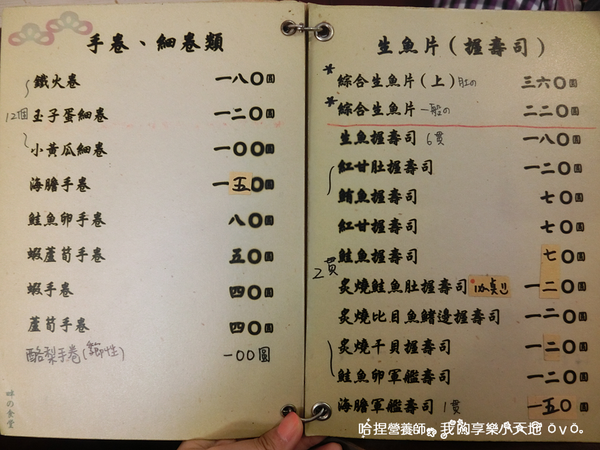 手卷、細卷類
鐵火卷 一八〇圓
12個 玉子蛋細卷 一二〇圓
小黃瓜細卷 一〇〇圓
海膽手卷 一五〇圓
鮭魚卵手卷 八〇圓
蝦蘆荀手卷 五〇圓
蝦手卷 四〇圓
蘆荀手卷 四〇圓
酪梨手卷(節性) 一00圓
の食堂
生魚片(握壽司)
*綜合生魚片(上)肚の 三六〇圓
*綜合生魚片 一般の 二二〇圓
生魚握壽司 6貫 一八〇圓
紅甘肚握壽司 一二〇圓
鮪魚握壽司 七〇圓
紅甘握壽司 七〇圓
2貫 鮭魚握壽司 七〇圓
炙燒鮭魚肚握壽司 一二〇圓
炙燒比目魚鰭邊握壽司 一二〇圓
炙燒干貝握壽司 一二〇圓
鮭魚卵軍艦壽司 一二〇圓
海膽軍艦壽司 1貫 一五〇圓
哈捏營養師。我的享樂小天地 ōvō.